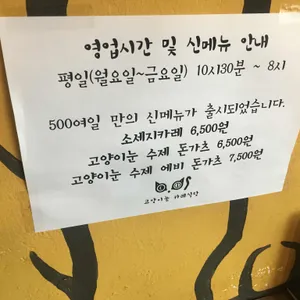 영업시간 및 신메뉴 안내
평일(월요일~금요일) 10시30분 ~ 8시
500여일 만의 신메뉴가 출시되었습니다.
소세지카레 6,500원
고양이눈 수제 돈가츠 6,500원
고양이눈 수제 에비 돈가츠 7,500원
고양이눈 카레식당